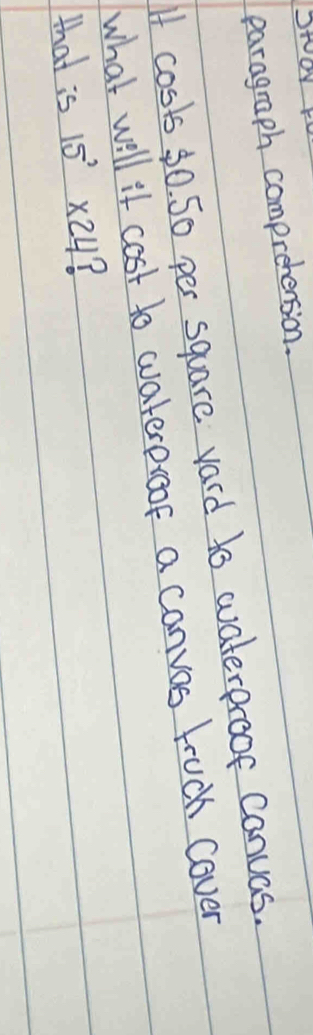 paragraph comprehension.
It costs $0.50 per square yard to waterproof canvas.
What will it cost to waterproof a canvas truck cover
that is 15' x24?